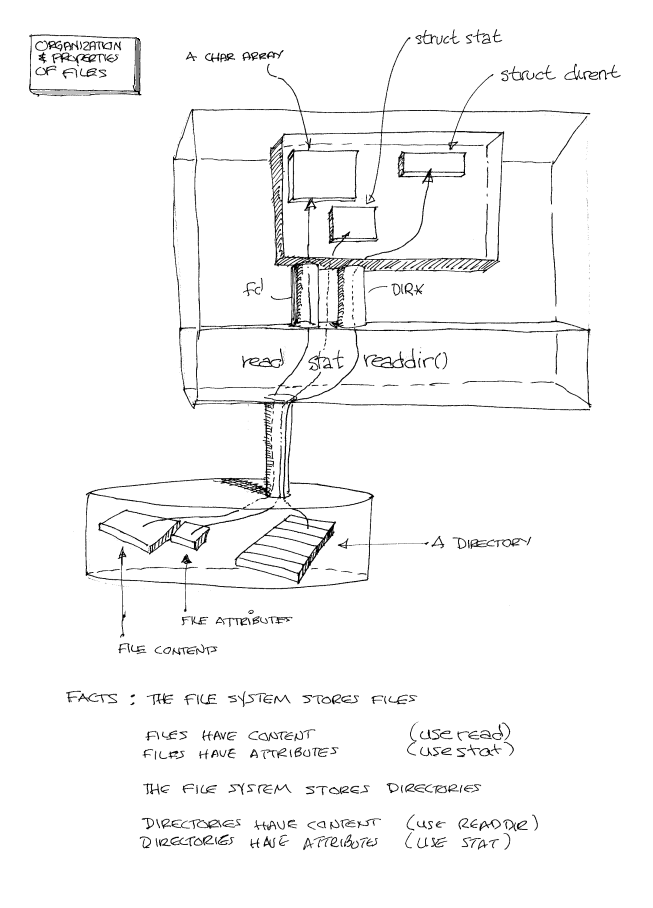 ORGANIZATION
& PROPERTIES
OF FILES
A CHAR ARRAY
struct stat
struct dirent
fd
DIR*
read stat readdir()
A DIRECTORY
FILE ATTRIBUTES
FILE CONTENTS
FACTS : THE FILE SYSTEM STORES FILES
FILES HAVE CONTENT (use read)
FILES HAVE ATTRIBUTES (use stat)
THE FILE SYSTEM STORES DIRECTORIES
DIRECTORIES HAVE CONTENT (USE READDIR)
DIRECTORIES HAVE ATTRIBUTES (USE STAT)